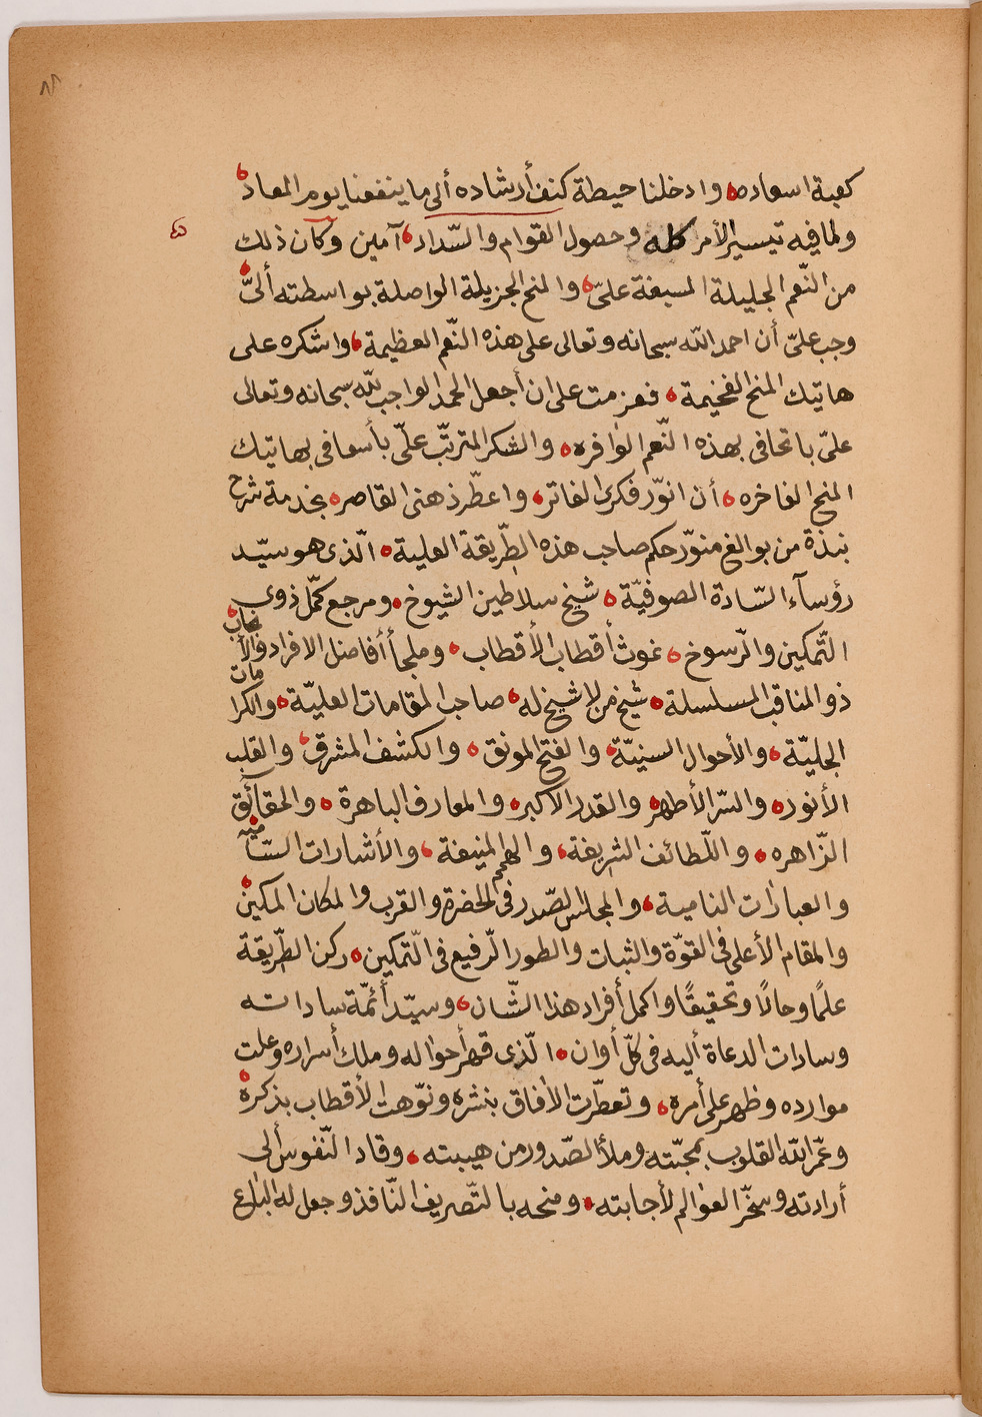 كعبة اسعاده وادخلنا حيطة كنف أرشاده ألى ما ينفعنا يوم المعاد
ولما فيه تيسير الأمر كله وحصول القوام والسّداد آمين وكان ذلك
من النّعم الجليلة المسبغة علىّ والمنح الجزيلة الواصلة بواسطته ألىّ
وجب علىّ أن احمد الله سبحانه وتعالى على هذه النّعم العظيمة واشكره على
هاتيك المنح الفخيمة فعزمت على ان أجعل الحمد الواجب لله سبحانه وتعالى
علىّ باتحافى بهذه النّعم الوافره والشكر المترتّب علىّ بأسعافى بهاتيك
المنح الفاخره أن انوّر فكرى الفاتر واعطّر ذهنى القاصر بخدمة شرح
نبذة من بوالغ منوّر حكم صاحب هذه الطّريقة العلية الّذى هو سيّد
رؤسآء السّادة الصوفيّة شيخ سلاطين الشيوخ ومرجع كمّل ذوى
التّمكين والرّسوخ غوث أقطاب الأقطاب وملجأ أفاضل الافراد والأنجاب
ذو المناقب المسلسلة شيخ من لا شيخ له صاحب المقامات العليّة والكرامات
الجليّة والأحوال السنيّة والفتح المونق والكشف المشرق والقلب
الأنور والسّر الأطهر والقدر الأكبر والمعارف الباهرة والحقآئق
الزّاهره واللّطائف الشريفة والهمم المنيفة والأشارات السّامية
والعبارات النامية والمجالس لصّدر فى الحضرة والقرب والمكان المكين
والمقام الأعلى فى القوّة والثبات والطور الرّفيع فى التّمكين ركن الطّريقة
علمًا وحالًا وتحقيقًا واكمل أفراد هذا الشّان وسيّد أئمّة ساداته
وسادات الدعاة أليه فى كلّ أوان الّذى قهر أحواله وملك أسراره وعلت
موارده وظهر على أمره وتعطّرت الأفاق بنشره ونوّهت الأقطاب بذكره
وعمّر الله القلوب بمحبّته وملأ الصّدور من هيبته وقاد النّفوس ألى
أرادته وسخّر العوالم لأجابته ومنحه بالتّصريف النّافذ وجعل له الباع